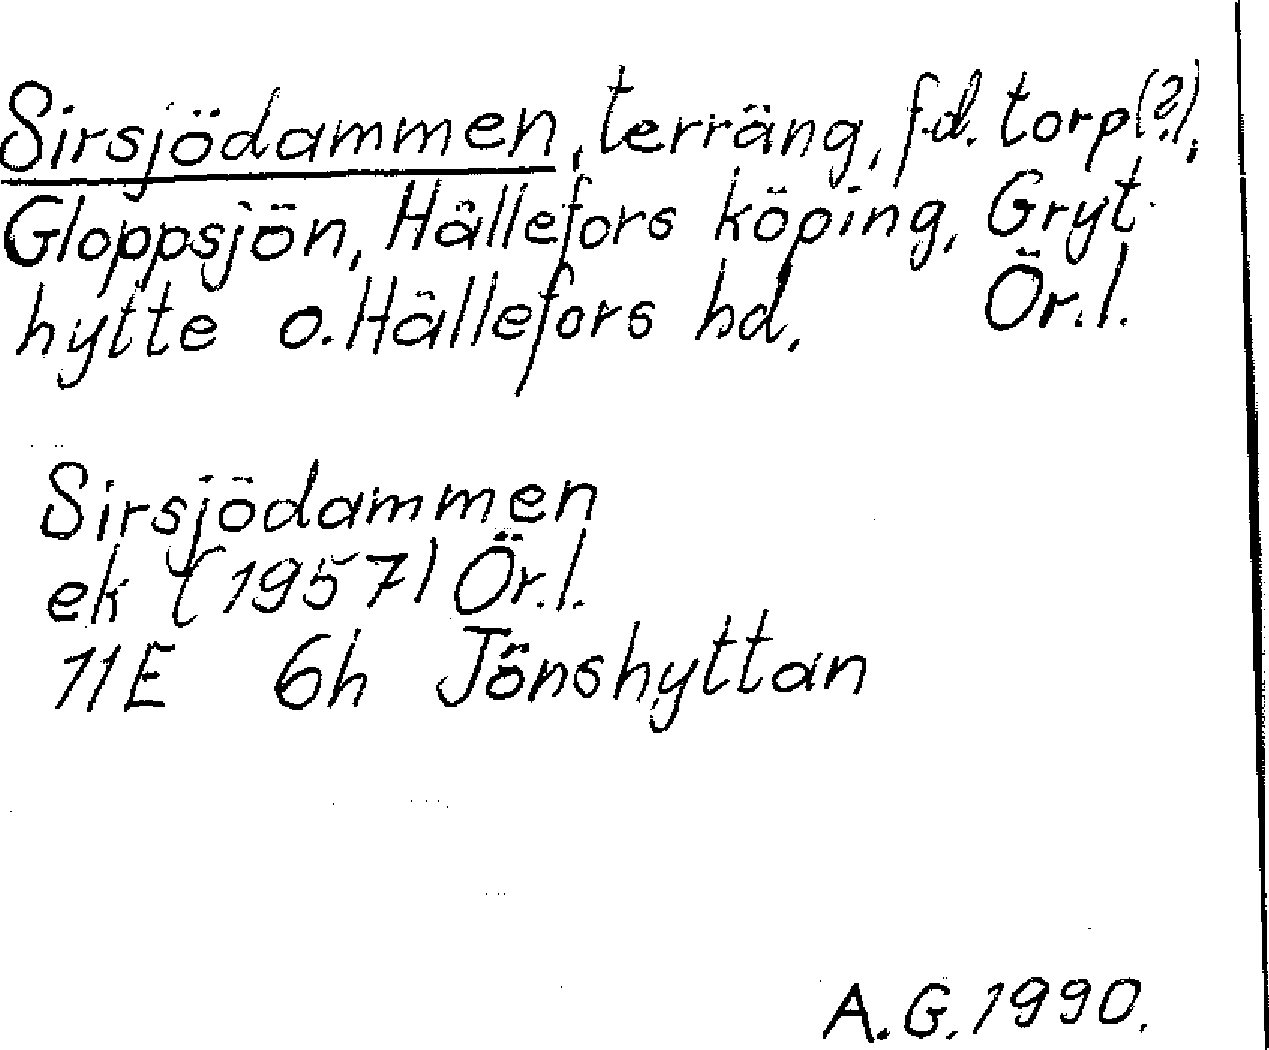 Sirsjödammen, terräng, f.d. torp(?),
Gloppsjön, Hällefors köping, Gryt-
hytte o. Hällefors hd. Ör.l.
Sirsjödammen
ek (1957) Ör.l.
11E 6h Jönshyttan
A.G. 1990.